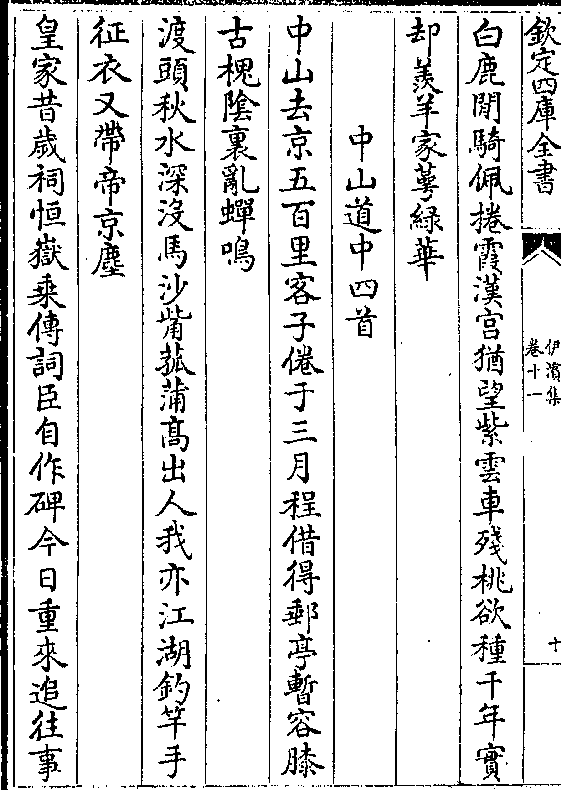 欽定四庫全書
伊濱集
卷十一
十
白鹿閒騎佩捲霞漢宫猶望紫雲車殘桃欲種千年實
却羨羊家萼緑華
中山道中四首
中山去京五百里客子倦于三月程借得郵亭暫容膝
古槐隂裏亂蟬鳴
渡頭秋水深没馬沙觜菰蒲髙出人我亦江湖釣竿手
征衣又帶帝京塵
皇家昔歲祠恒嶽乘傳詞臣自作碑今日重來追往事